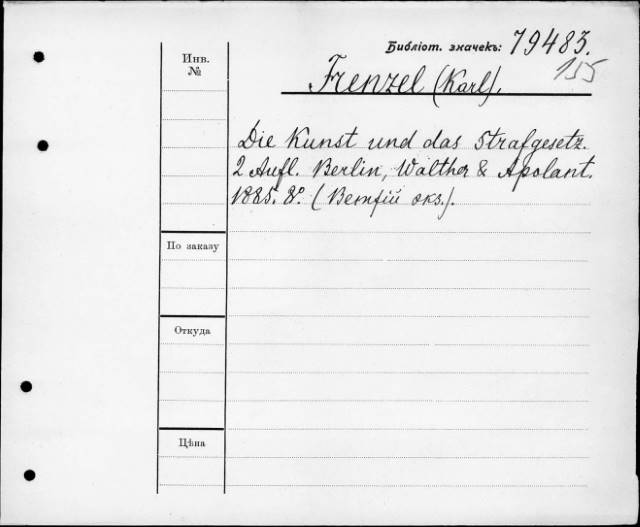 Библіот. значекъ: 79483.
155
Инв.
№
Frenzel (Karl).
Die Kunst und das Strafgesetz.
2 Aufl. Berlin, Walther & Apolant.
1885. 8º. (Ветхій экз.).
По заказу
Откуда
Цѣна